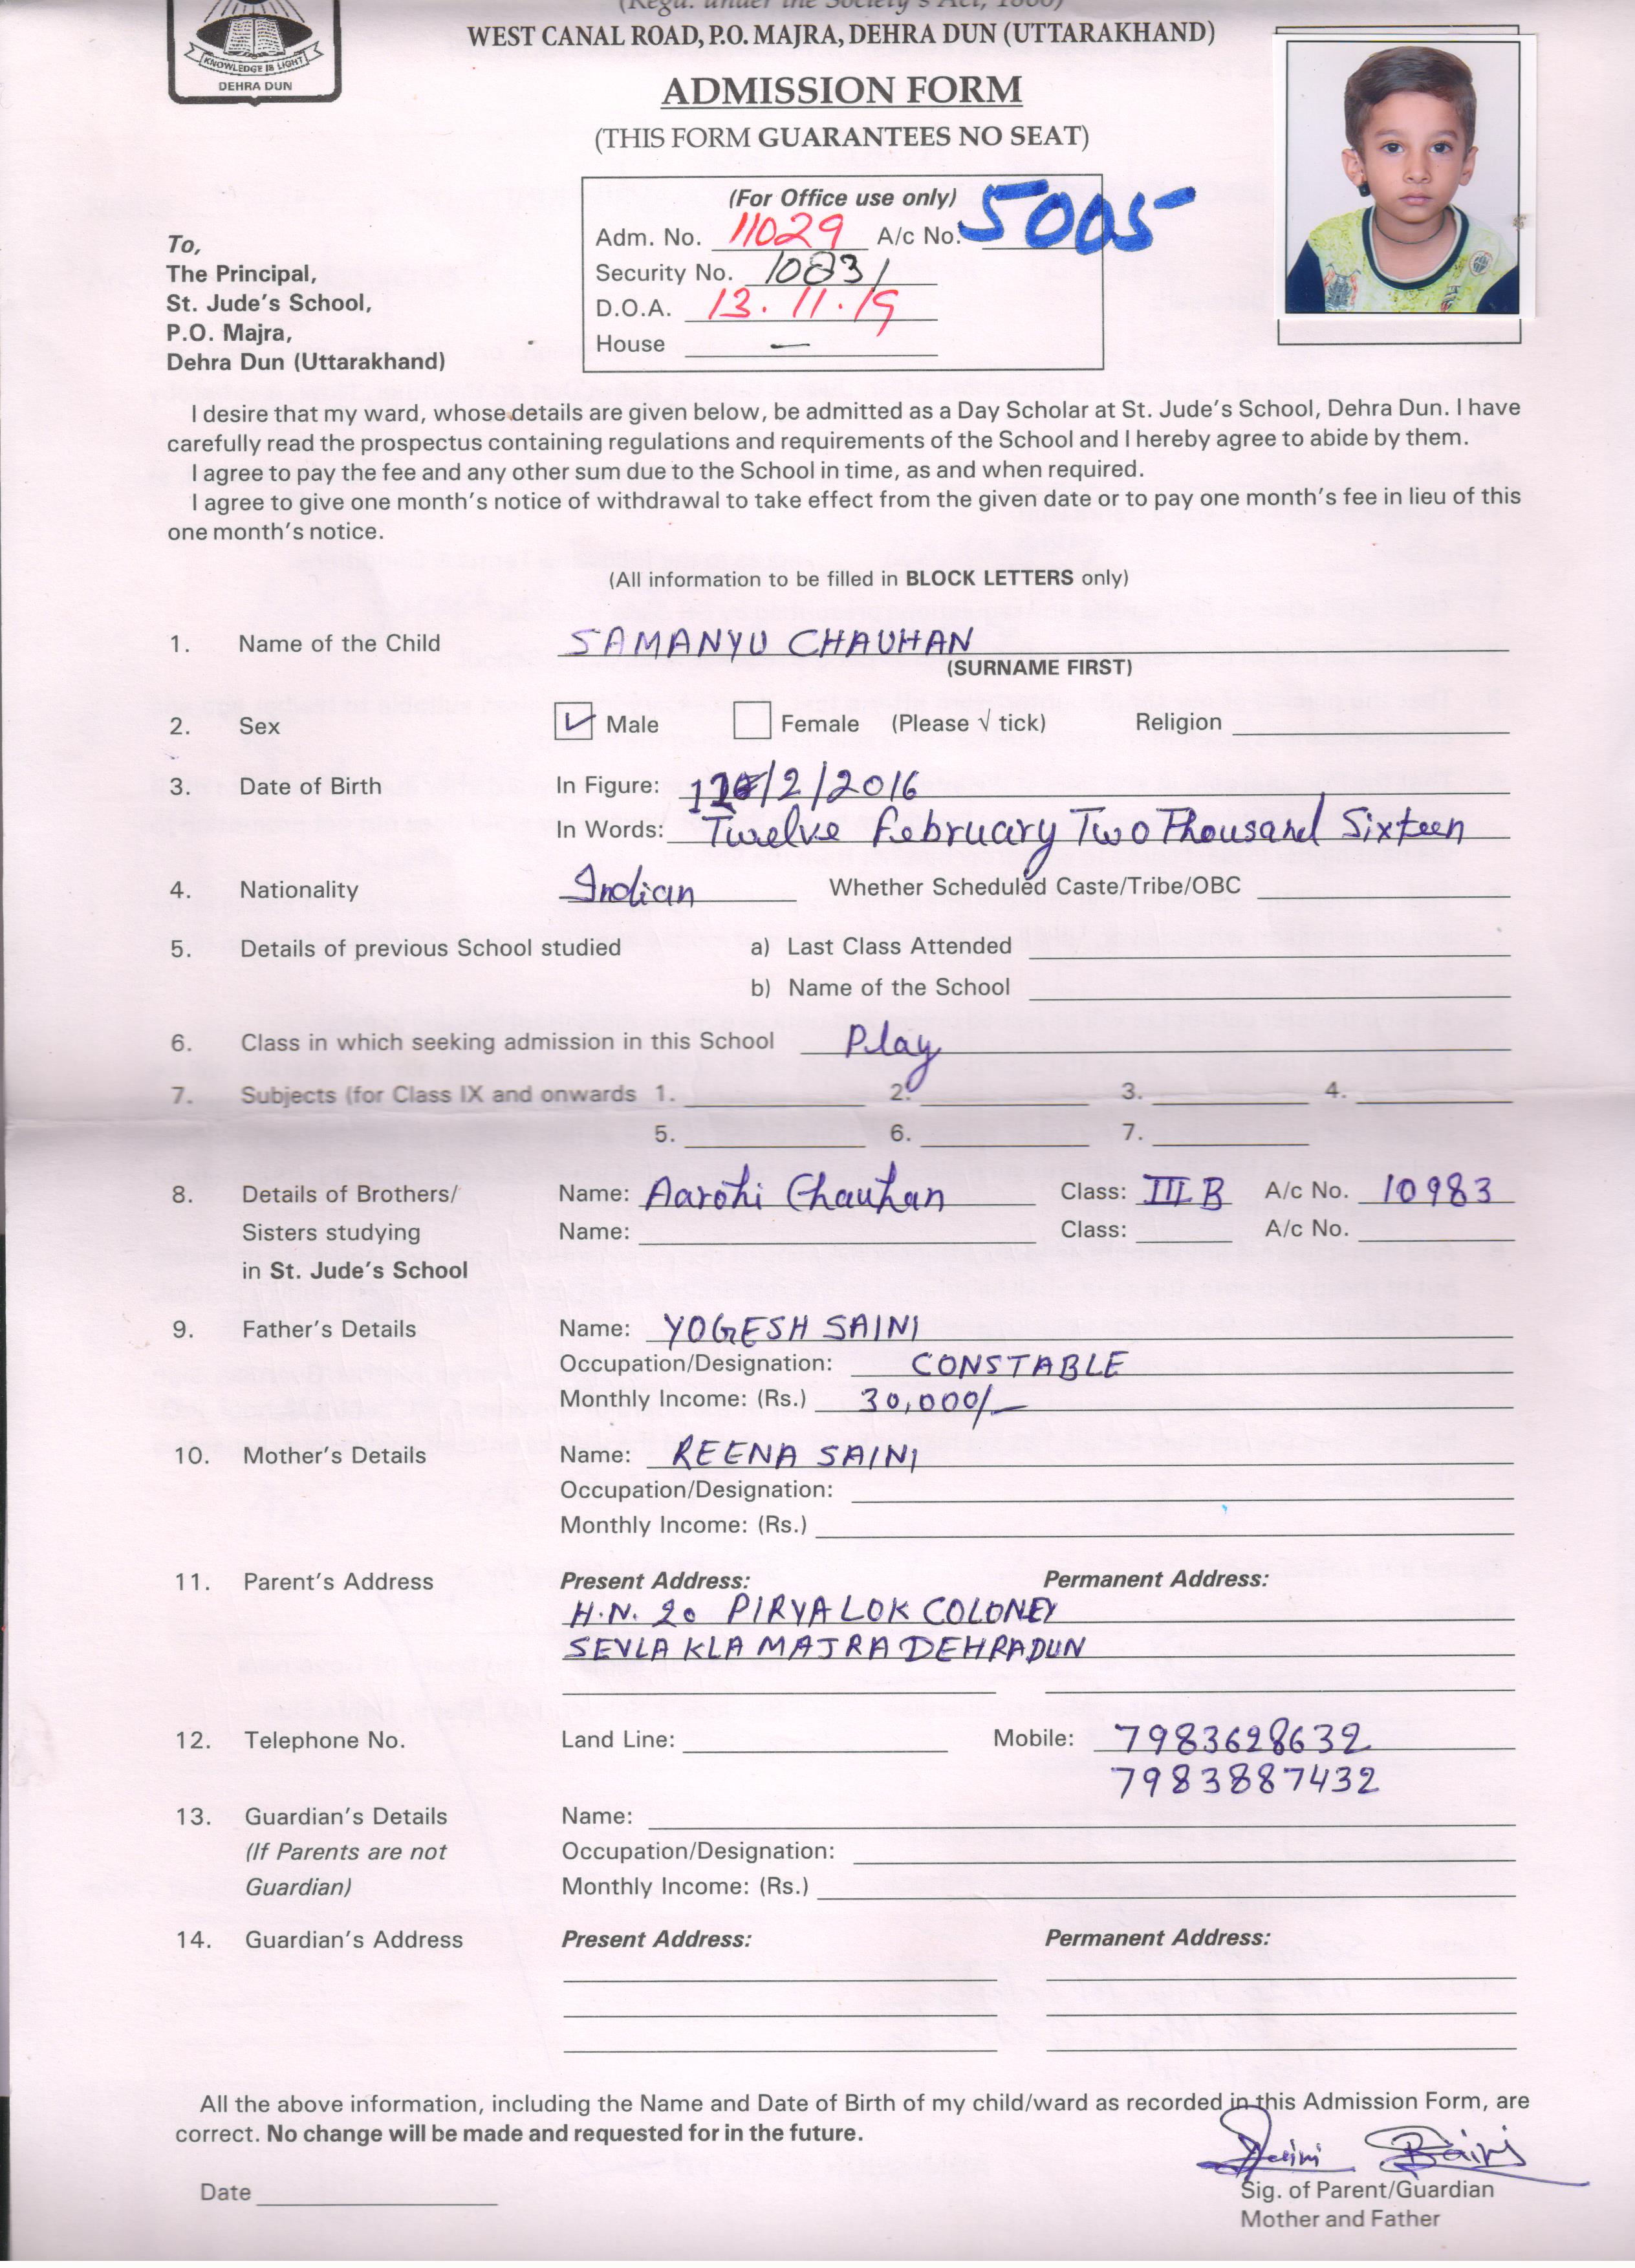 (Regd. under the Society's Act, 1860)
WEST CANAL ROAD, P.O. MAJRA, DEHRA DUN (UTTARAKHAND)
KNOWLEDGE IS LIGHT
DEHRA DUN
ADMISSION FORM
(THIS FORM GUARANTEES NO SEAT)
(For Office use only)
Adm. No. 11029 A/c No. 5005
Security No. 10831
D.O.A. 13.11.19
House —
To,
The Principal,
St. Jude's School,
P.O. Majra,
Dehra Dun (Uttarakhand)
I desire that my ward, whose details are given below, be admitted as a Day Scholar at St. Jude's School, Dehra Dun. I have
carefully read the prospectus containing regulations and requirements of the School and I hereby agree to abide by them.
I agree to pay the fee and any other sum due to the School in time, as and when required.
I agree to give one month's notice of withdrawal to take effect from the given date or to pay one month's fee in lieu of this
one month's notice.
(All information to be filled in BLOCK LETTERS only)
1. Name of the Child SAMANYU CHAUHAN
(SURNAME FIRST)
2. Sex ✓ Male Female (Please √ tick) Religion
3. Date of Birth In Figure: /2/2016
In Words: Twelve February Two Thousand Sixteen
4. Nationality Indian Whether Scheduled Caste/Tribe/OBC
5. Details of previous School studied a) Last Class Attended
b) Name of the School
6. Class in which seeking admission in this School Play
7. Subjects (for Class IX and onwards 1. 2. 3. 4.
5. 6. 7.
8. Details of Brothers/ Name: Aarohi Chauhan Class: III B A/c No. 10983
Sisters studying Name: Class: A/c No.
in St. Jude's School
9. Father's Details Name: YOGESH SAINI
Occupation/Designation: CONSTABLE
Monthly Income: (Rs.) 30,000/-
10. Mother's Details Name: REENA SAINI
Occupation/Designation:
Monthly Income: (Rs.)
11. Parent's Address Present Address: Permanent Address:
H.N. 20 PIRYA LOK COLONEY
SEVLA KLA MAJRA DEHRADUN
12. Telephone No. Land Line: Mobile: 7983628632
7983887432
13. Guardian's Details Name:
(If Parents are not Occupation/Designation:
Guardian) Monthly Income: (Rs.)
14. Guardian's Address Present Address: Permanent Address:
All the above information, including the Name and Date of Birth of my child/ward as recorded in this Admission Form, are
correct. No change will be made and requested for in the future.
Saini
Date
Sig. of Parent/Guardian
Mother and Father